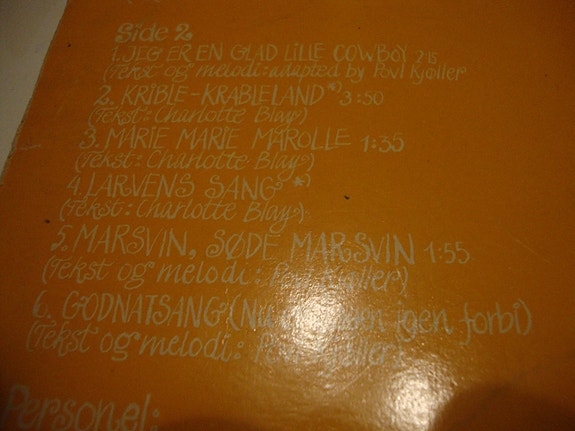 Side 2
1. JEG ER EN GLAD LILLE COWBOY 2:15
(Tekst og melodi: adapted by Povl Kjøller
2. KRIBLE-KRABLELAND *) 3:50
(Tekst: Charlotte Blay)
3. MARIE MARIE MAROLLE 1:35
(Tekst: Charlotte Blay)
4. LARVENS SANG *)
(Tekst: Charlotte Blay)
5. MARSVIN, SØDE MARSVIN 1:55
(Tekst og melodi: Povl Kjøller)
6. GODNATSANG (NU igen forbi)
(Tekst og melodi: Povl Kjøller)
Personel: